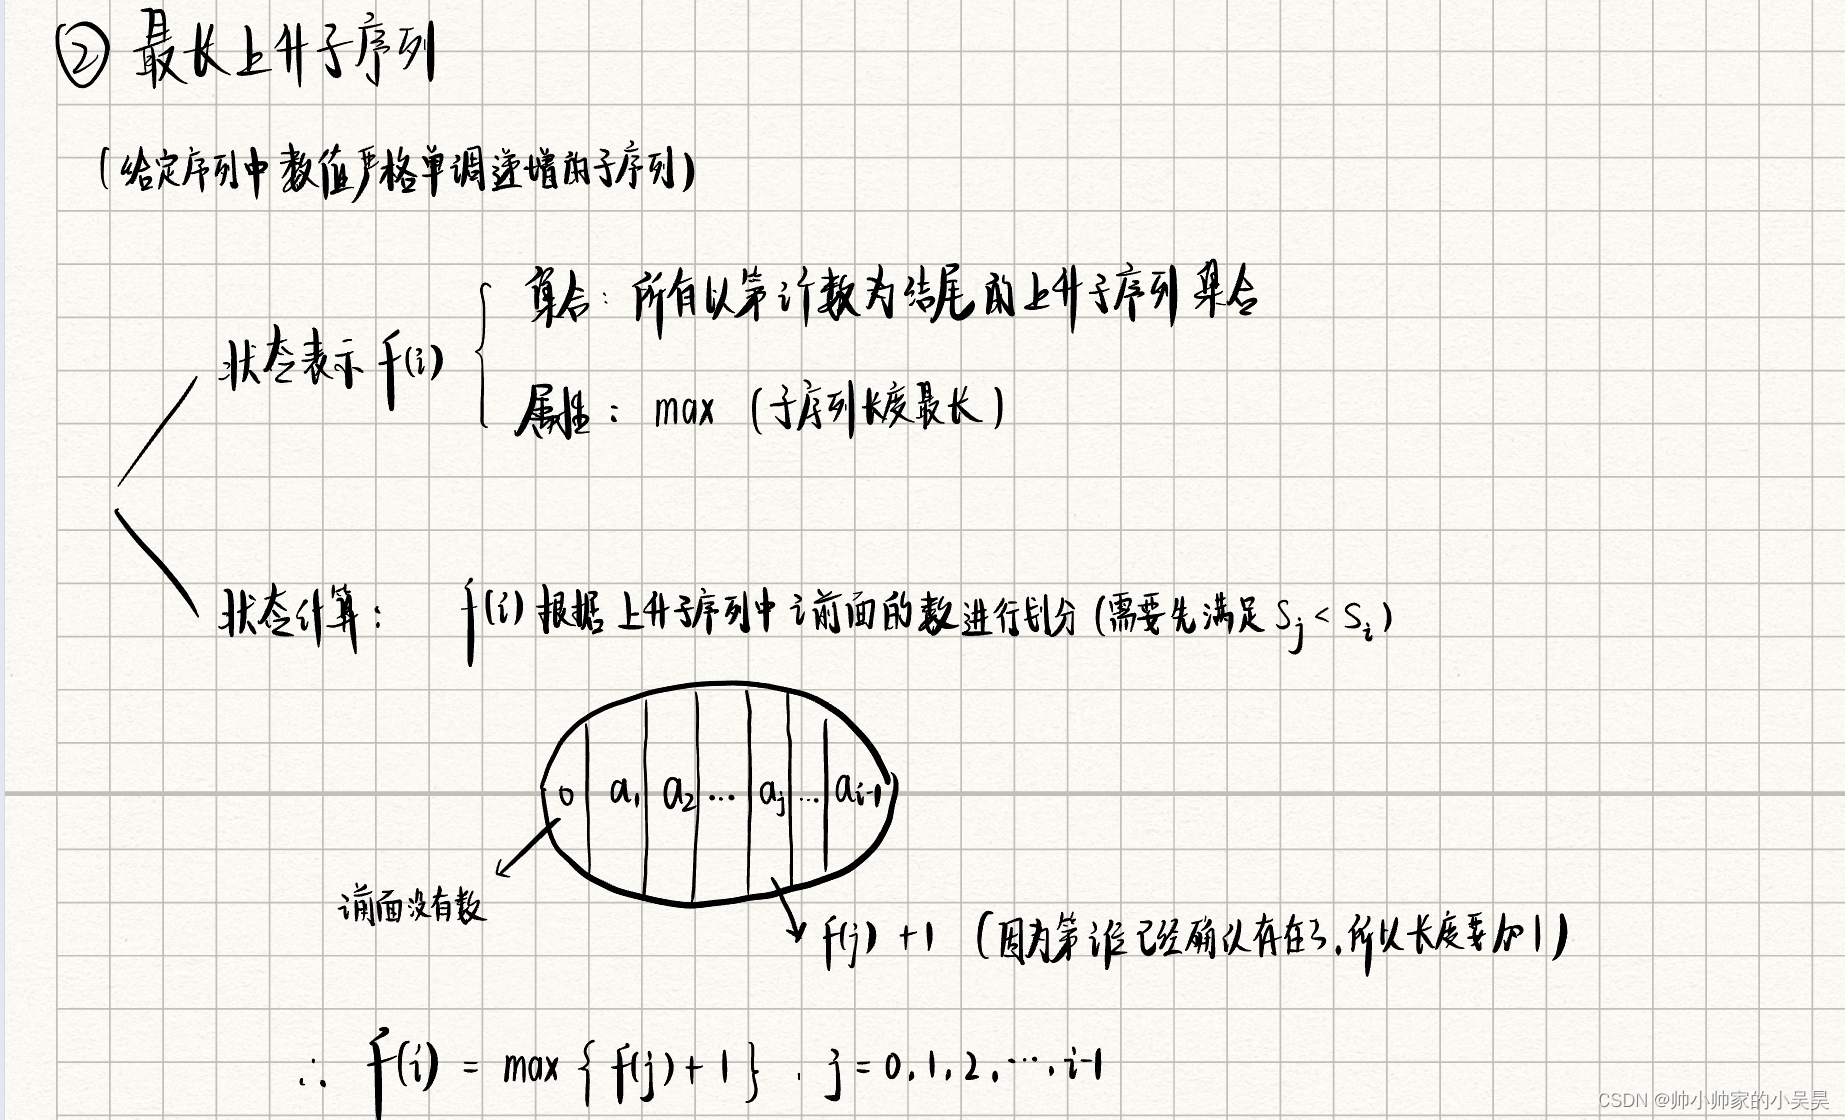 ② 最长上升子序列
(给定序列中数值严格单调递增的子序列)
集合: 所有以第i个数为结尾的上升子序列集合
状态表示 f(i)
属性: max (子序列长度最长)
状态计算: f(i) 根据上升子序列中i前面的数进行划分 (需要先满足 Sj < Si)
0 a1 a2 ... aj ... ai-1
i前面没有数
f(j) + 1 (因为第i位已经确认存在了,所以长度要加1)
∴ f(i) = max { f(j) + 1 } , j = 0, 1, 2, ..., i-1
CSDN @帅小帅家的小吴昊